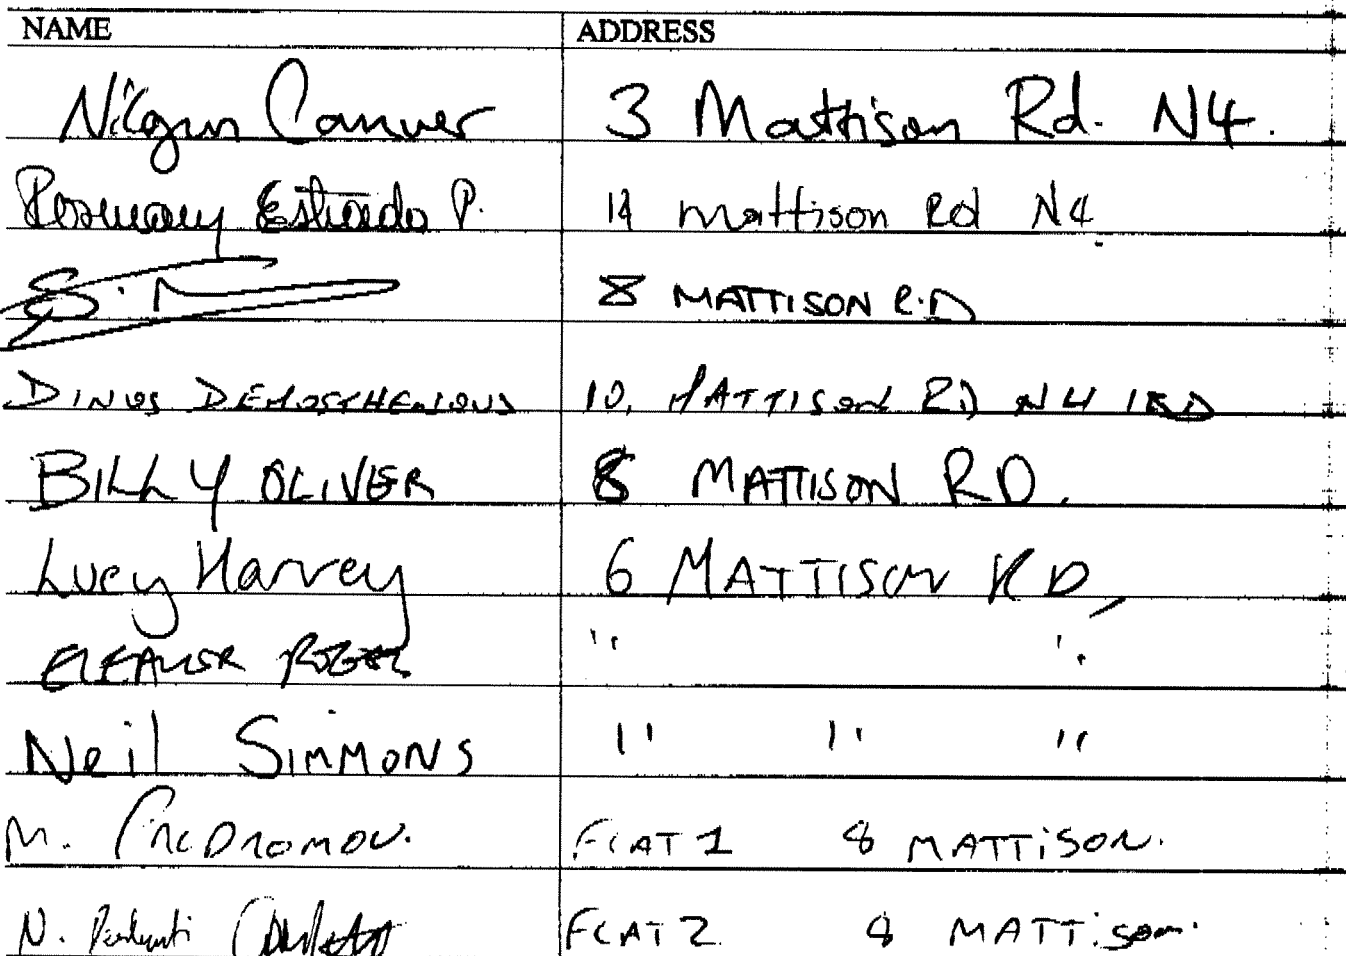 NAME ADDRESS
Nilgun Canver 3 Mattison Rd. N4.
Rosemary Estrada P. 14 Mattison Rd N4
S. 8 MATTISON R.D
DINOS DEMOSTHENOUS 10, MATTISON RD N4 1BD
BILLY OLIVER 8 MATTISON RD.
Lucy Harvey 6 MATTISON RD,
ELEANOR " "
Neil SIMMONS " " "
M. FLAT 1 8 MATTISON.
N. FLAT 2 8 MATTISON.